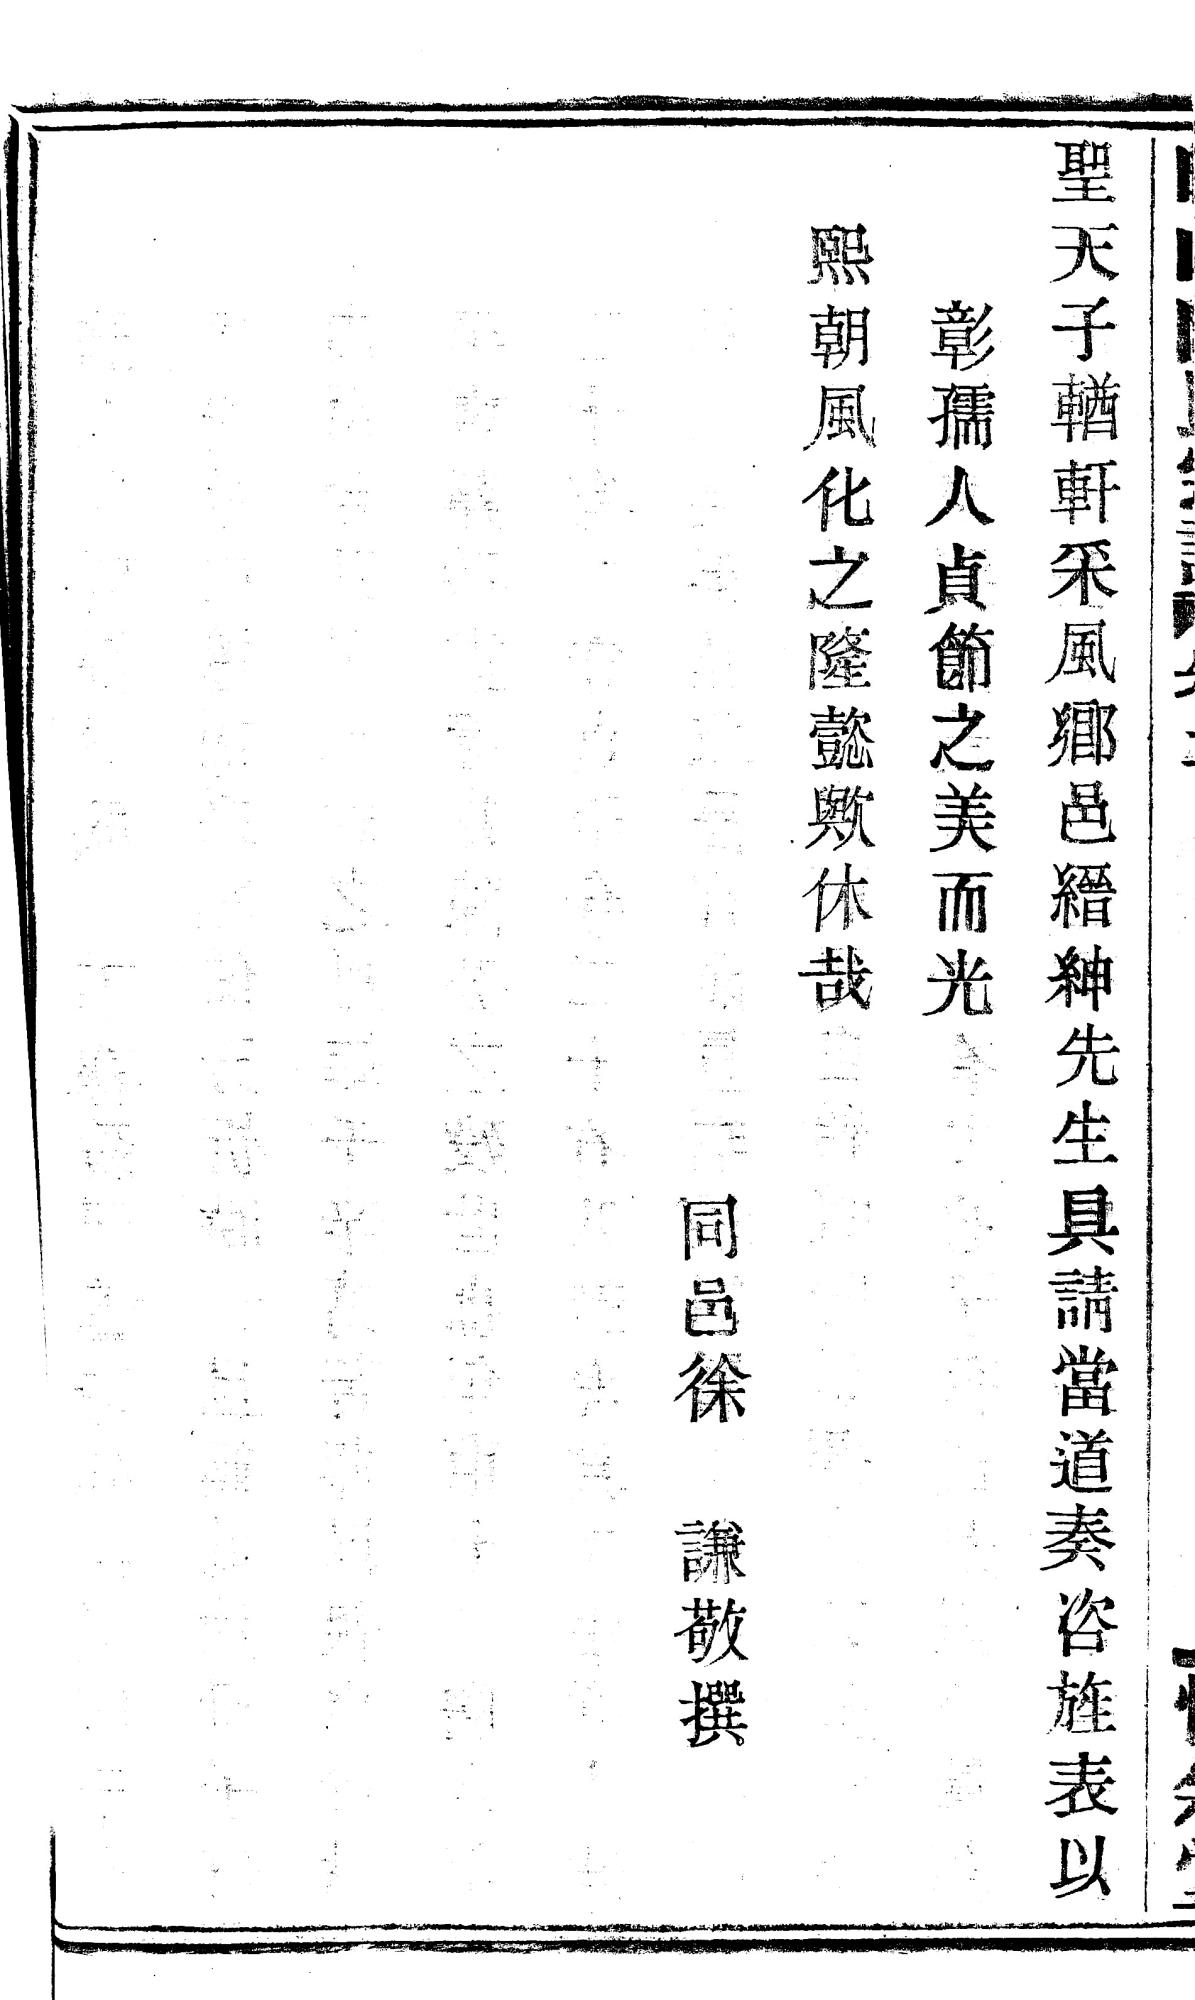 聖天子輶軒采風鄉邑縉紳先生具請當道奏咨旌表以
彰孺人貞節之美而光
熙朝風化之隆懿歟休哉
同邑徐　謙敬撰